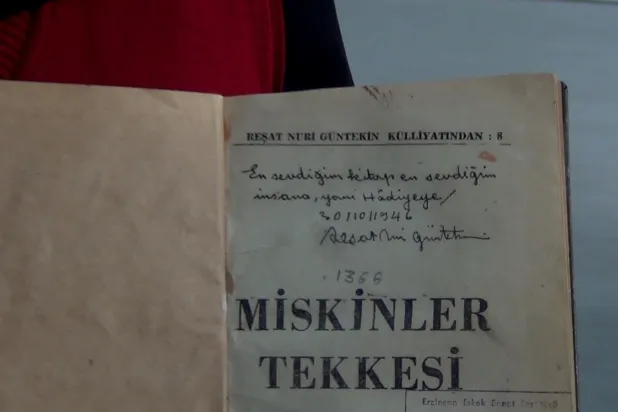 REŞAT NURİ GÜNTEKİN KÜLLİYATINDAN : 8
En sevdiğim kitap en sevdiğim
insana, yani Hâdiyeye/
30/10/1946
Reşat Nuri Güntekin
1366
MİSKİNLER
TEKKESİ